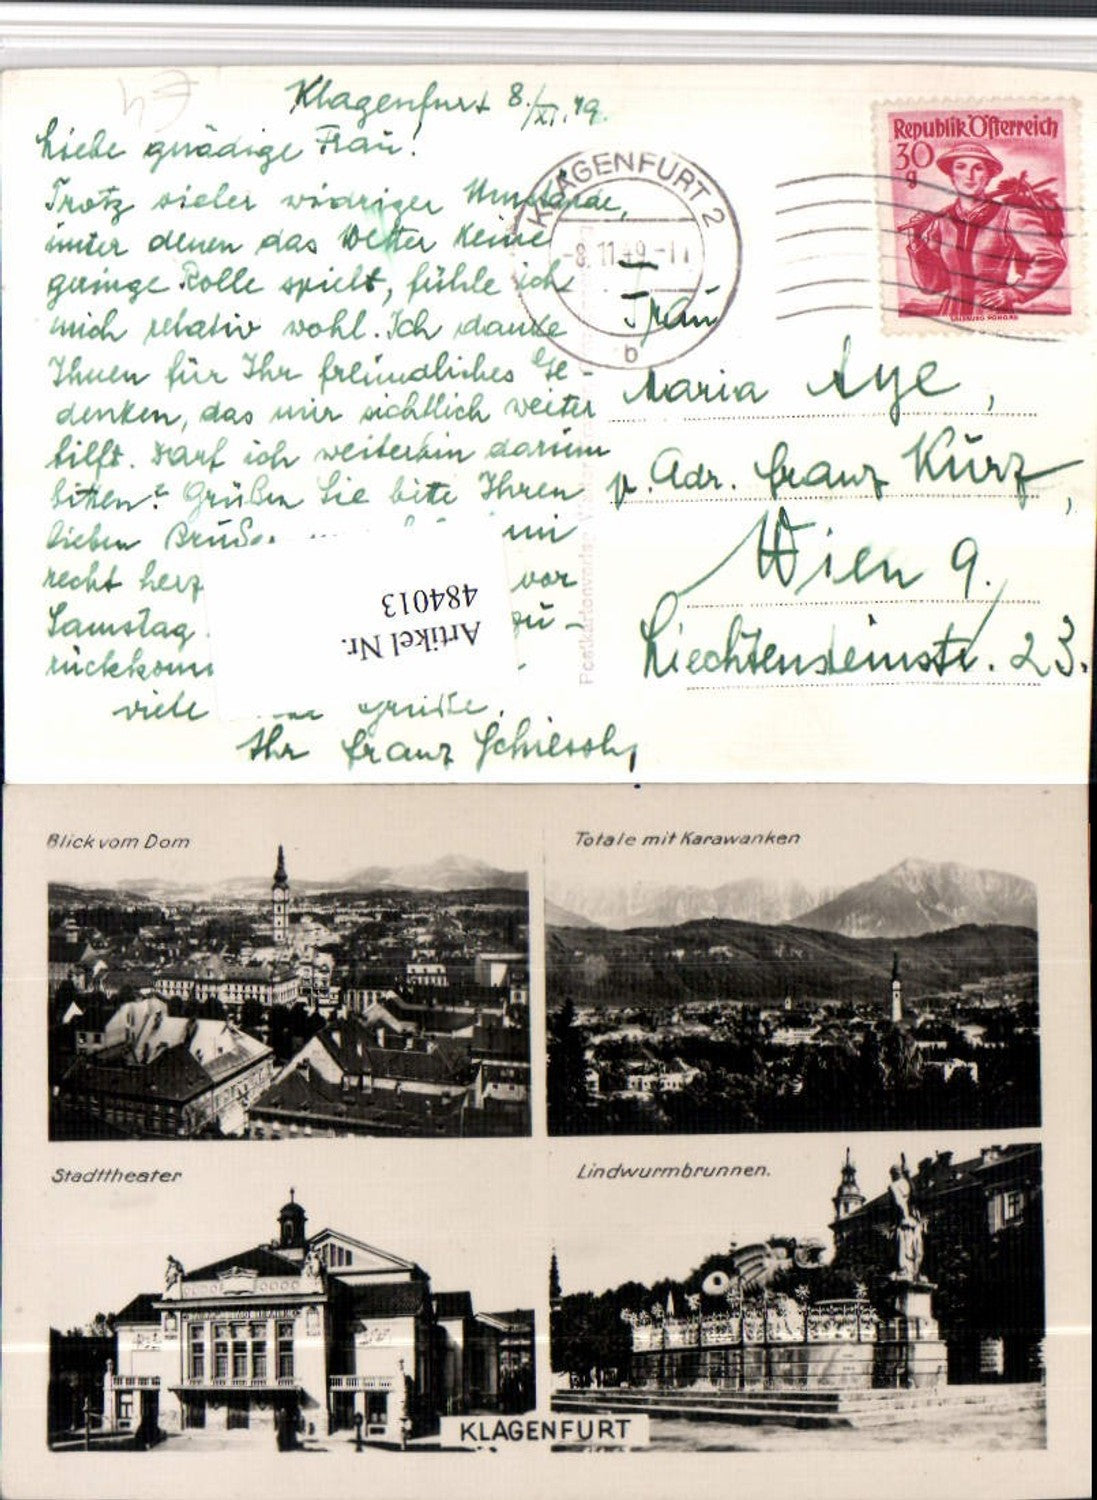 Klagenfurt 8./XI.49.
Liebe gnädige Frau!
Trotz vieler widriger Umstände,
unter denen das Wetter keine
geringe Rolle spielt, fühle ich
mich relativ wohl. Ich danke
Ihnen für Ihr freundliches Ge-
denken, das mir sichtlich weiter
hilft. Darf ich weiterhin darum
bitten? Grüßen Sie bitte Ihren
lieben Bruder
recht herz vor
Samstag zu-
rückkomm
viele Grüße.
Ihr Franz
Artikel Nr.
484013
Republik Österreich
30 g
KLAGENFURT 2
-8.11.49-17
b
Frau
Maria Aye,
p. Adr. Franz Kurz,
Wien 9.
Liechtensteinstr. 23.
Postkartenverlag
Blick vom Dom
Totale mit Karawanken
Stadttheater
Lindwurmbrunnen.
KLAGENFURT